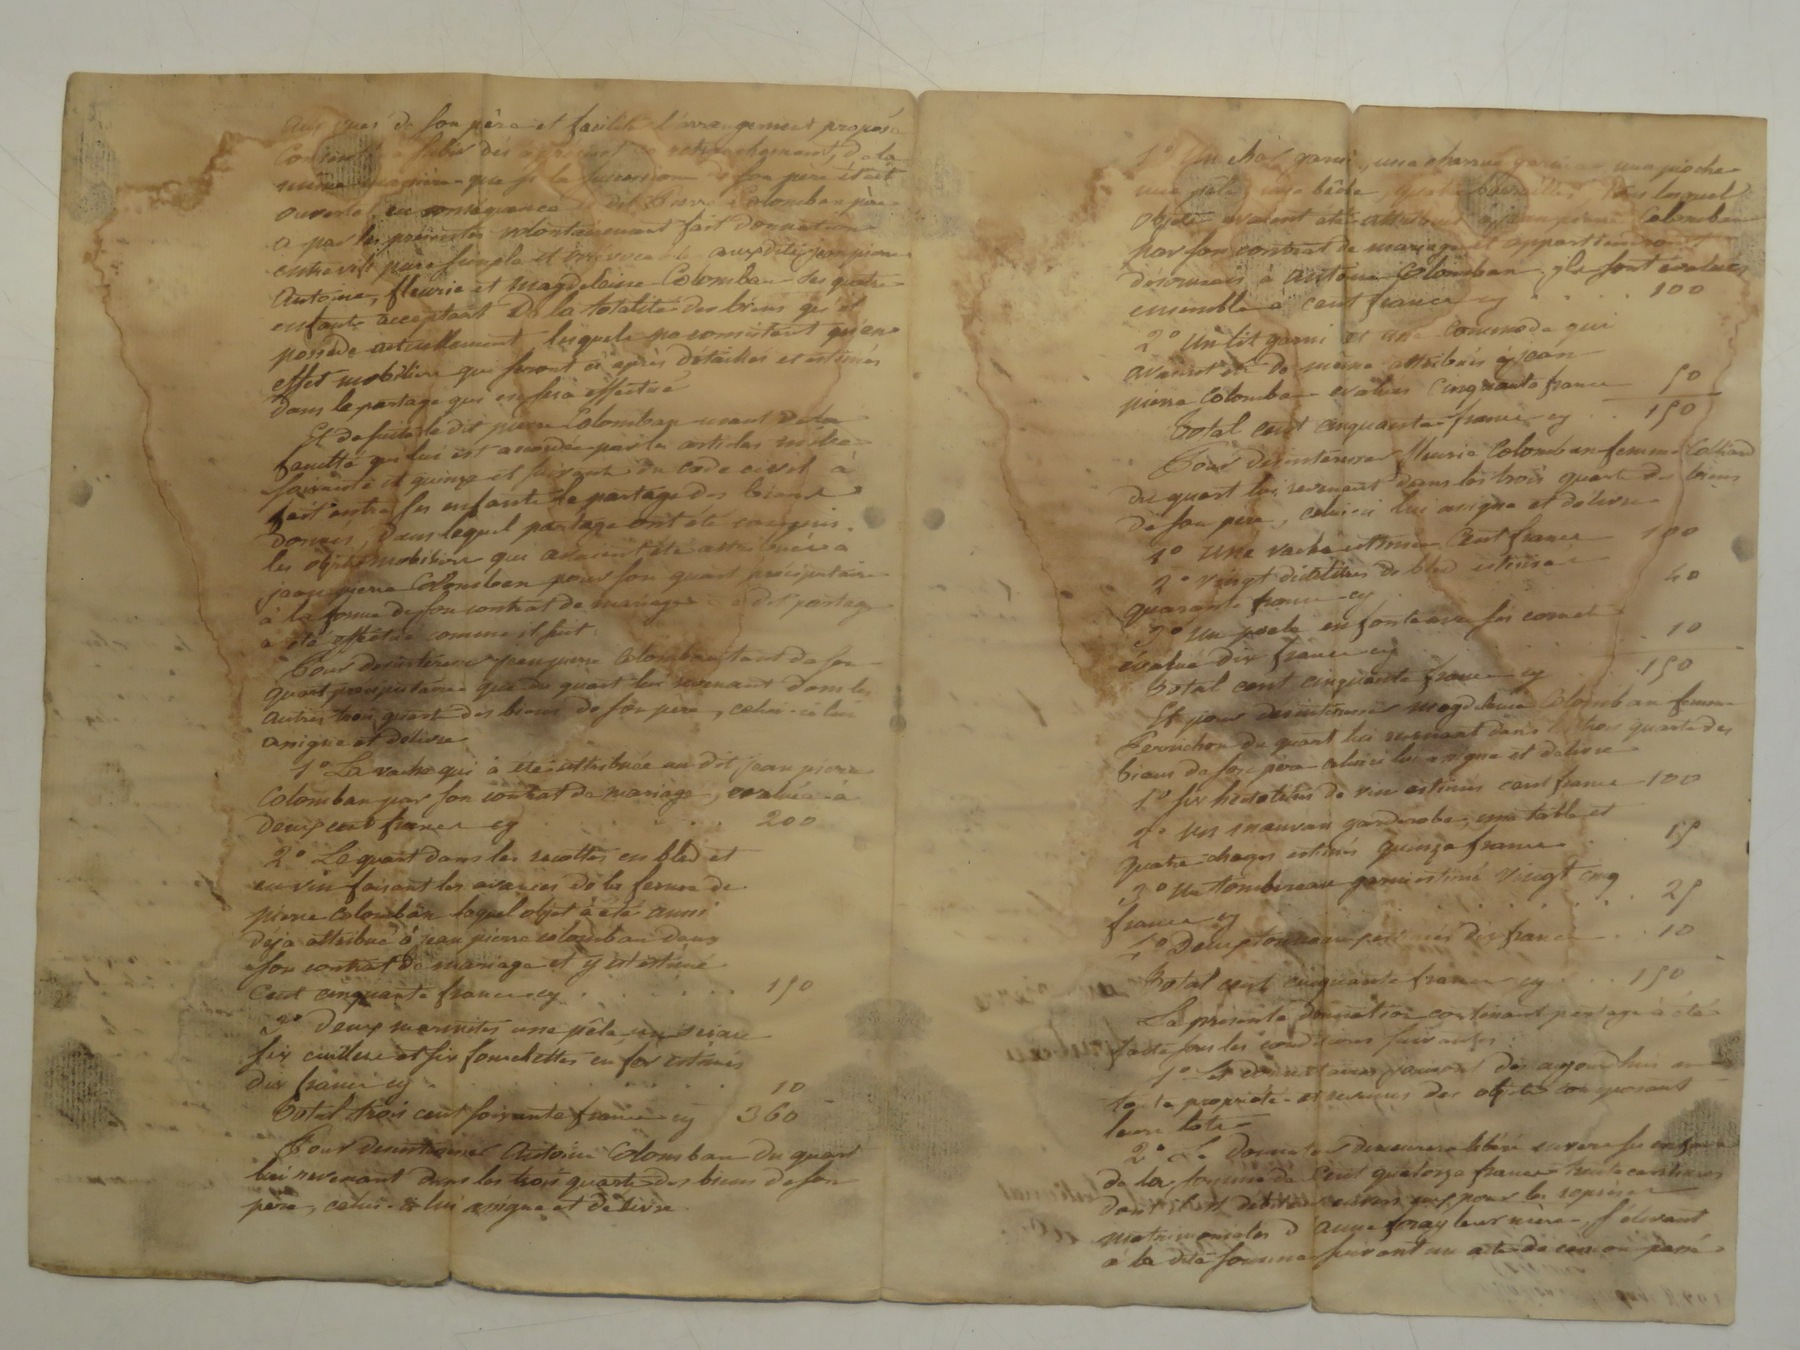 de son père et faciliter l'arrangement proposé
retranchement, de la
même manière que si la succession de son père était
ouverte, en conséquence le dit Pierre Colomban père
a par les présentes volontairement fait donnation
entrevifs pure simple et irrévocable aux dits jean pierre
Antoine, fleurie et magdeleine Colomban ses quatre
enfants acceptant de la totalité des biens qu'il
possède actuellement, lesquels ne consistent qu'en
effet mobiliers qui seront ci après détaillés et estimés
dans le partage qui en sera effectué
Et de suite le dit pierre Colomban usant de la
faculté qui lui est accordée par les articles mille
soixante et quinze et suivant du code civil à
fait entre ses enfants le partage des biens
donnés, dans lequel partage ont été compris
les objets mobiliers qui avaient été attribués à
jean pierre Colomban pour son quart préciputaire
à la forme de son contrat de mariage le dit partage
a été effectué comme il suit.
Pour desintéresser jean pierre Colomban tant de son
quart préciputaire que du quart lui revenant dans les
autres trois quart des biens de son père, celui-ci lui
assigne et délivre
1° La vache qui à été attribuée au dit jean pierre
Colomban par son contrat de mariage, évaluée à
deux cent francs cy 200
2° Le quart dans les récoltes en bled et
en vin faisant les avances de la ferme de
pierre Colomban lequel objet à été aussi
déja attribué à jean pierre colomban dans
son contrat de mariage et y est estimé
Cent cinquante francs cy 150
3° deux marmites une pêle, un seau
six cuillers et six fourchettes en fer estimés
dix francs cy 10
Total trois cent soixante francs cy 360
Pour desintéresser Antoine Colomban du quart
lui revenant dans les trois quarts des biens de son
père, celui-ci lui assigne et délivre
1° Un char garni, une charrue garnie une pioche
une pêle, une bêche, quatre tous lesquel
objets avaient été attribués à jean pierre Colomban
par son contrat de mariage et appartiendront
désormais à antoine Colomban, ils sont évalués
ensemble a cent francs cy 100
2° Un lit garni et une commode qui
avaient été de même attribués à jean
pierre Colomban évalués cinquante francs 50
Total cent cinquante francs cy 150
Pour desintéresser fleurie Colomban femme
du quart lui revenant dans les trois quarts des biens
de son père, celui ci lui assigne et délivre
1° Une vache estimée Cent francs 100
2° vingt décalitres de bled estimés 40
quarante francs cy
3° un poele en fonte avec ses cornets
évalué dix francs cy 10
Total cent cinquante francs cy 150
Et pour desintéresser magdeleine Colomban femme
du quart lui revenant dans les trois quarts des
biens de son père celui ci lui assigne et délivre
1° six hectolitres de vin estimés cent francs 100
2° un mauvais garderobe, une table et
quatre estimés quinze francs 15
3° Un tombereau garni estimé vingt cinq
francs cy 25
4° Deux tonneaux estimés dix francs 10
Total cent cinquante francs cy 150
La presente donnation contenant partage à été
faite sous les conditions suivantes
1° Les donnataires jouiront dès aujourdhui en
toute propriété et revenus des objets composant
leurs lots
2° Le donnateur demeurera libéré envers ses enfans
de la somme de Cent quatorze francs trente centimes
dont il est débiteur envers eux pour les reprises
matrimoniales d'anne leur mère, s'élevant
à la dite somme suivant un acte de passé